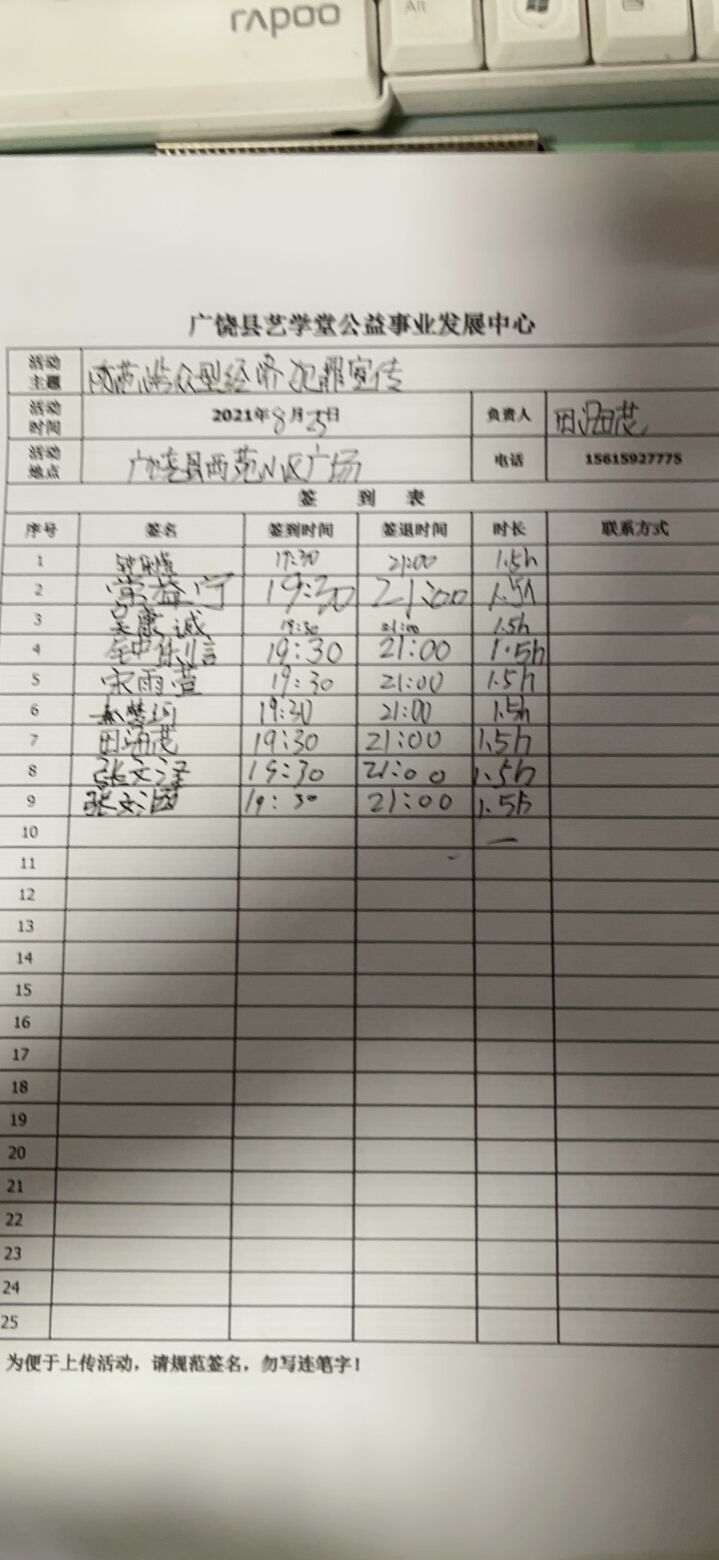 rapoo
Alt
广饶县艺学堂公益事业发展中心
活动主题 防范涉众型经济犯罪宣传
活动时间 2021年8月25日 负责人 田海茂
活动地点 广饶县西苑小区广场 电话 15615927775
签 到 表
序号 签名 签到时间 签退时间 时长 联系方式
1 19:30 21:00 1.5h
2 常益宁 19:30 21:00 1.5h
3 吴康诚 19:30 21:00 1.5h
4 19:30 21:00 1.5h
5 宋雨萱 19:30 21:00 1.5h
6 19:30 21:00 1.5h
7 田海茂 19:30 21:00 1.5h
8 张文泽 19:30 21:00 1.5h
9 张文涵 19:30 21:00 1.5h
10
11
12
13
14
15
16
17
18
19
20
21
22
23
24
25
为便于上传活动，请规范签名，勿写连笔字！